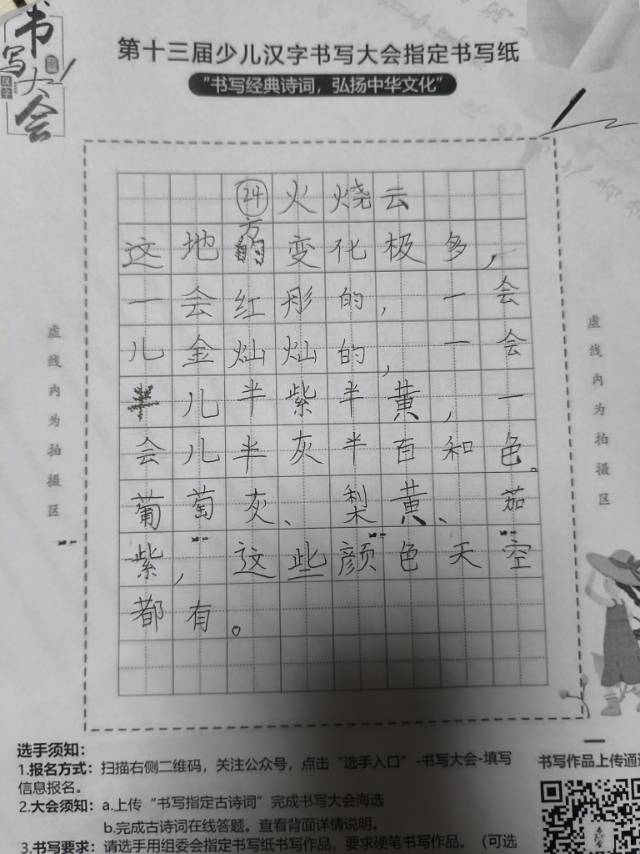 书写大会
汉字
第十三届少儿汉字书写大会指定书写纸
“书写经典诗词，弘扬中华文化”
24 火烧云
这地方的变化极多，
一会红彤的，一会
儿金灿灿的，一会
半儿半紫半黄，一
会儿半灰半百和色。
葡萄灰、梨黄、茄
紫，这些颜色天空
都有。
虚线内为拍摄区
虚线内为拍摄区
选手须知：
1.报名方式：扫描右侧二维码，关注公众号，点击“选手入口”-书写大会-填写
信息报名。
2.大会须知：a.上传“书写指定古诗词”完成书写大会海选
b.完成古诗词在线答题。查看背面详情说明。
3.书写要求：请选手用组委会指定书写纸书写作品，要求硬笔书写作品。（可选
书写作品上传通